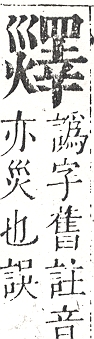 譌字舊註音
亦災也誤